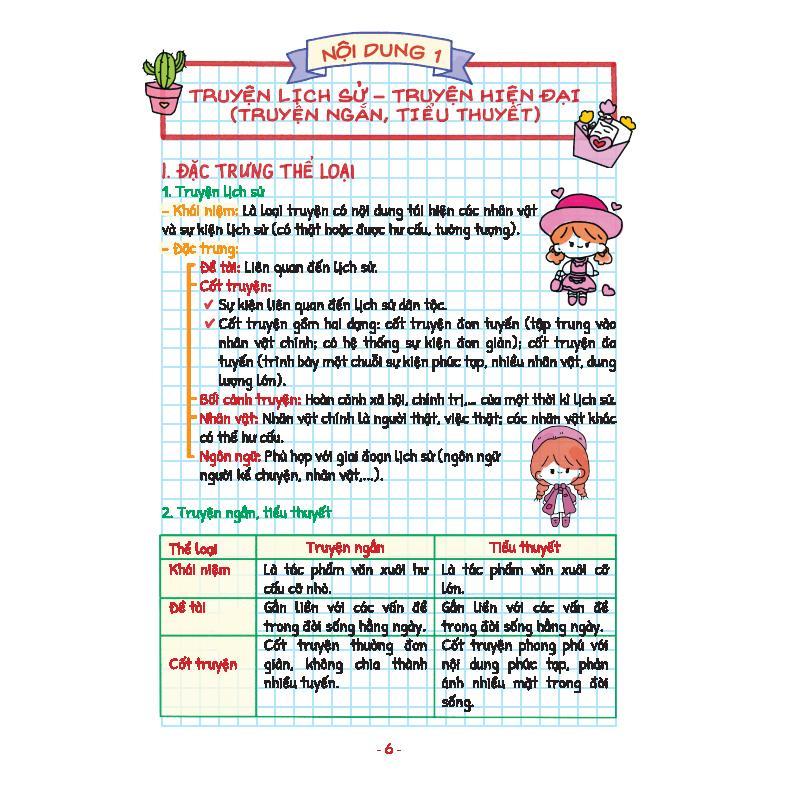 NỘI DUNG 1
TRUYỆN LỊCH SỬ – TRUYỆN HIỆN ĐẠI
(TRUYỆN NGẮN, TIỂU THUYẾT)
I. ĐẶC TRƯNG THỂ LOẠI
1. Truyện lịch sử
– Khái niệm: Là loại truyện có nội dung tái hiện các nhân vật
và sự kiện lịch sử (có thật hoặc được hư cấu, tưởng tượng).
– Đặc trưng:
Đề tài: Liên quan đến lịch sử.
Cốt truyện:
✓ Sự kiện liên quan đến lịch sử dân tộc.
✓ Cốt truyện gồm hai dạng: cốt truyện đơn tuyến (tập trung vào
nhân vật chính; có hệ thống sự kiện đơn giản); cốt truyện đa
tuyến (trình bày một chuỗi sự kiện phức tạp, nhiều nhân vật, dung
lượng lớn).
Bối cảnh truyện: Hoàn cảnh xã hội, chính trị,... của một thời kì lịch sử.
Nhân vật: Nhân vật chính là người thật, việc thật; các nhân vật khác
có thể hư cấu.
Ngôn ngữ: Phù hợp với giai đoạn lịch sử (ngôn ngữ
người kể chuyện, nhân vật,...).
2. Truyện ngắn, tiểu thuyết
Thể loại Truyện ngắn Tiểu thuyết
Khái niệm Là tác phẩm văn xuôi hư Là tác phẩm văn xuôi cỡ
cấu cỡ nhỏ. lớn.
Đề tài Gắn liền với các vấn đề Gắn liền với các vấn đề
trong đời sống hằng ngày. trong đời sống hằng ngày.
Cốt truyện Cốt truyện thường đơn Cốt truyện phong phú với
giản, không chia thành nội dung phức tạp, phản
nhiều tuyến. ánh nhiều mặt trong đời
sống.
- 6 -